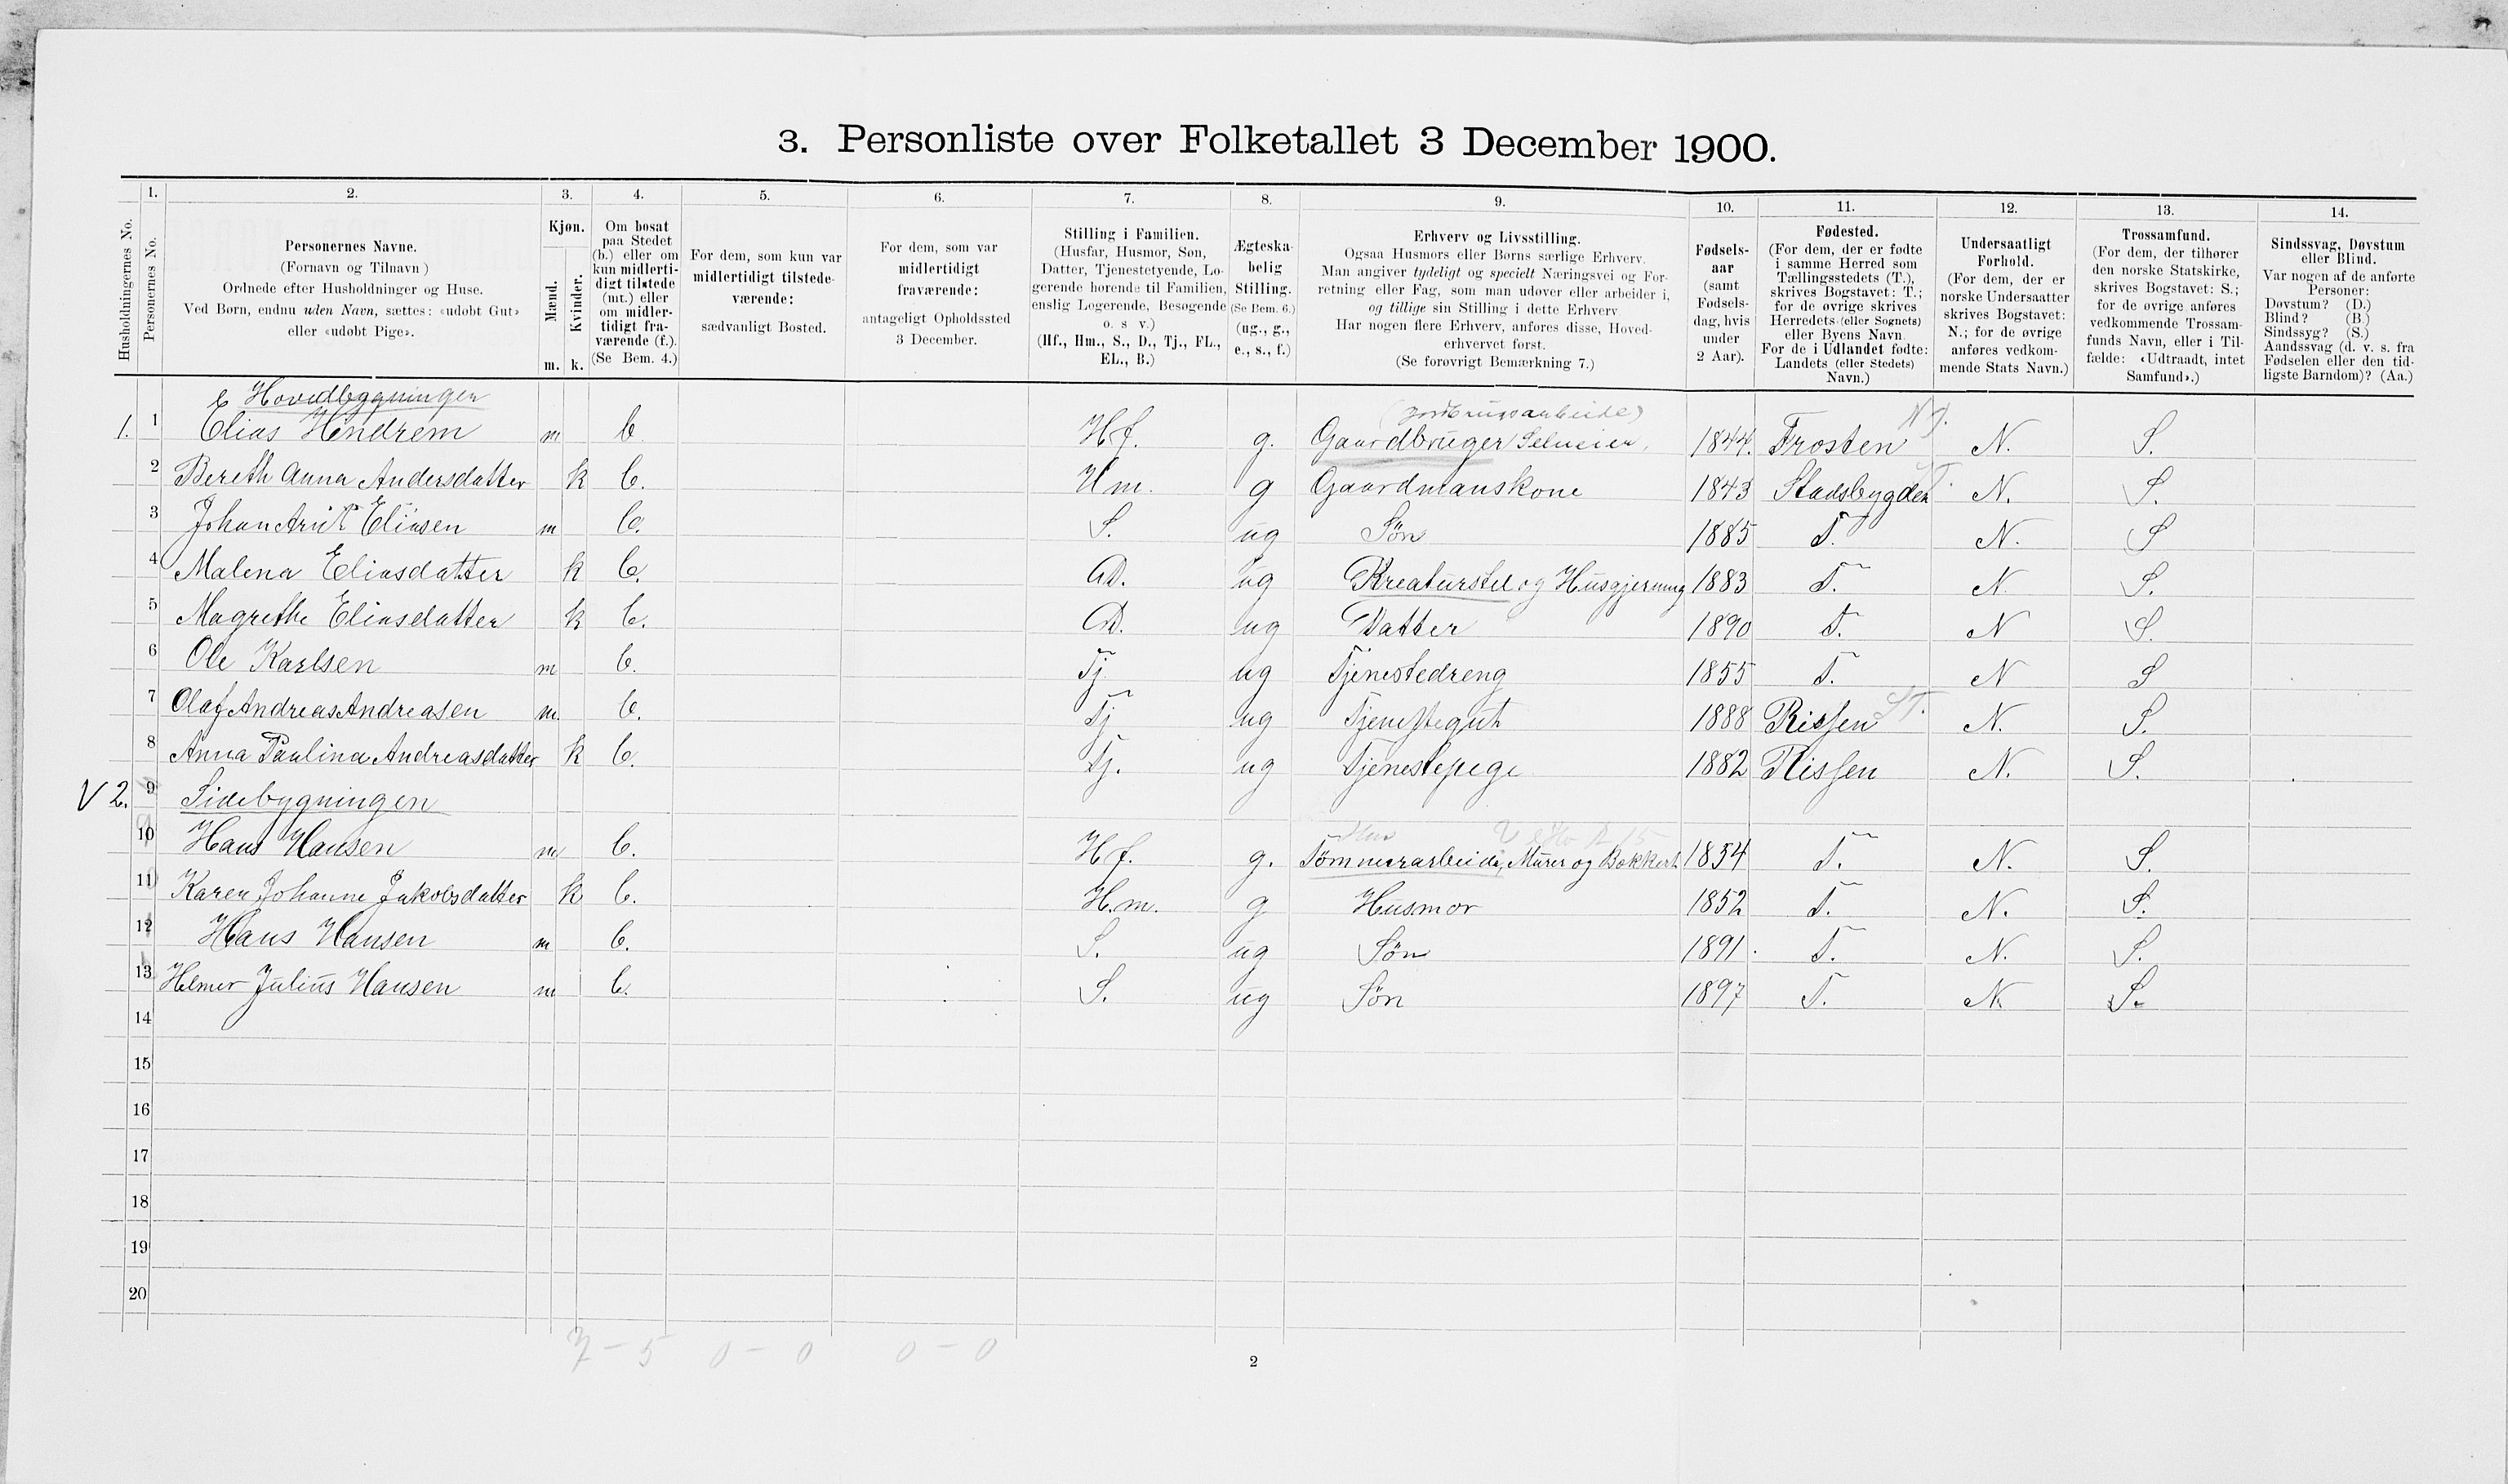 3. Personliste over Folketallet 3 December 1900.
Husholdningernes No.
1. Personernes No.
2. Personernes Navne.
(Fornavn og Tilnavn)
Ordnede efter Husholdninger og Huse.
Ved Børn, endnu uden Navn, sættes: «udøbt Gut»
eller «udøbt Pige».
3. Kjøn.
Mænd. m.
Kvinder. k.
4. Om bosat
paa Stedet
(b.) eller om
kun midlerti-
digt tilstede
(mt.) eller
om midler-
tidigt fra-
værende (f.).
(Se Bem. 4.)
5. For dem, som kun var
midlertidigt tilstede-
værende:
sædvanligt Bosted.
6. For dem, som var
midlertidigt
fraværende:
antageligt Opholdssted
3 December.
7. Stilling i Familien.
(Husfar, Husmor, Søn,
Datter, Tjenestetyende, Lo-
gerende hørende til Familien,
enslig Logerende, Besøgende
o. s. v.)
(Hf., Hm., S., D., Tj., FL.,
EL., B.)
8. Ægteska-
belig
Stilling.
(Se Bem. 6.)
(ug., g.,
e., s., f.)
9. Erhverv og Livsstilling.
Ogsaa Husmors eller Børns særlige Erhverv.
Man angiver tydeligt og specielt Næringsvei og For-
retning eller Fag, som man udøver eller arbeider i,
og tillige sin Stilling i dette Erhverv
Har nogen flere Erhverv, anføres disse, Hoved-
erhvervet først.
(Se forøvrigt Bemærkning 7.)
10. Fødsels-
aar
(samt
Fødsels-
dag, hvis
under
2 Aar).
11. Fødested.
(For dem, der er fødte
i samme Herred som
Tællingsstedets (T.),
skrives Bogstavet: T.;
for de øvrige skrives
Herredets (eller Sognets)
eller Byens Navn.
For de i Udlandet fødte:
Landets (eller Stedets)
Navn.)
12. Undersaatligt
Forhold.
(For dem, der er
norske Undersaatter
skrives Bogstavet:
N.; for de øvrige
anføres vedkom-
mende Stats Navn.)
13. Trossamfund.
(For dem, der tilhører
den norske Statskirke,
skrives Bogstavet: S.;
for de øvrige anføres
vedkommende Trossam-
funds Navn, eller i Til-
fælde: «Udtraadt, intet
Samfund».)
14. Sindssvag, Døvstum
eller Blind.
Var nogen af de anførte
Personer:
Døvstum? (D.)
Blind? (B.)
Sindssyg? (S.)
Aandssvag (d. v. s. fra
Fødselen eller den tid-
ligste Barndom)? (Aa.)
Hovedbygningen
1. 1 Elias Hindrem m b Hf. g. Gaardbruger Selveier. 1844. Frosten N. S.
2 Bereth Anna Andersdatter k b. Hm. g Gaardmanskone 1843 Stadsbygden N. S.
3 Johan Arnt Eliasen m b. S. ug Søn 1885 T. N. S
4 Malena Eliasdatter k b. D. ug Kreaturstel og Husgjerning 1883 T. N S.
5 Magrethe Eliasdatter k b. D. ug Datter 1890 T. N S.
6 Ole Karlsen m b. Tj ug Tjenestedreng 1855 T. N S
7 Olaf Andreas Andreasen m. b. Tj ug Tjenestegut 1888 Rissen N. S.
8 Anna Paulina Andreasdatter k b. Tj. ug Tjenestepige 1882 Rissen N. S.
V 2. 9 Sidebygningen
10 Hans Hansen m b. Hf. g. Tømmerarbeide, Murer og 1854 T. N. S.
11 Karen Johanne Jakobsdatter k b. H.m. g Husmor 1852 T. N. S.
12 Hans Hansen m b. S. ug Søn 1891. T. N. S.
13 Helmer Julius Hansen m b. S. ug Søn 1897 T. N. S.
14
15
16
17
18
19
20
7 - 5 0 - 0 0 - 0
2